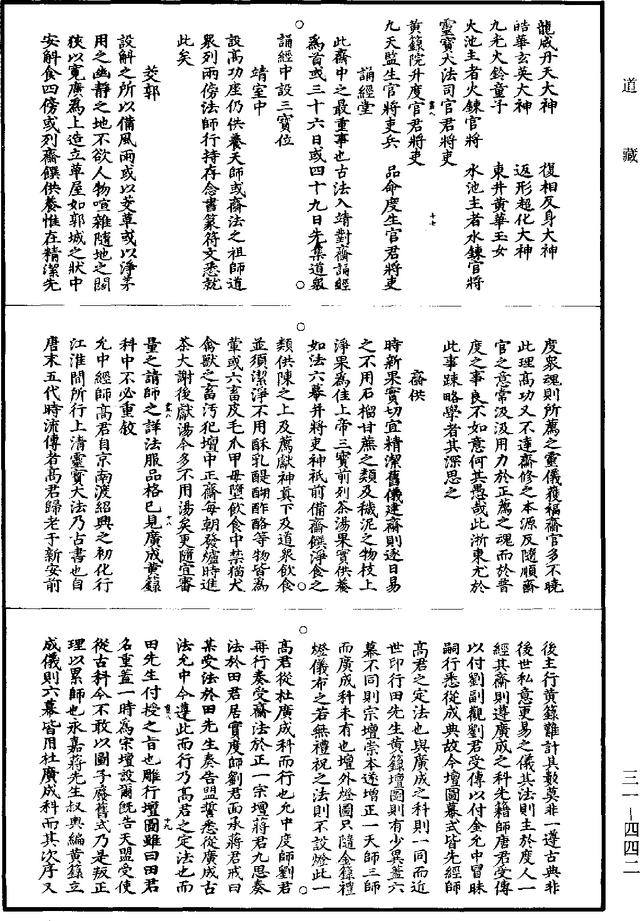 道藏
龍威丹天大神　復相反身大神
皓華玄英大神　返形超化大神
九光火鈴童子　東井黃華玉女
火池主者火鍊官將　水池主者水鍊官將
靈寶大法司官君將吏
黃籙院升度官君將吏
九天監生官將吏兵　品命度生官君將吏
誦經堂
此齋中之最重事也古法入靖對齋誦經
爲首或三十六日或四十九日先集道衆
誦經中設三寶位
靖室中
設高功座仍供養天師或齋法之祖師道
衆列兩傍法師行持存念書篆符文悉就
此矣
茭郭
設斛之所以備風雨或以茭草或以淨茅
用之幽靜之地不欲人物喧雜隨地之闊
狹以寬廣爲上造立草屋如郭城之狀中
安斛食四傍或列齋饌供養惟在精潔先
度衆魂則所薦之靈儀獲福齋官多不曉
此理高功又不達齋修之本源反隨順齋
官之意常汲汲用力於正薦之魂而於普
度之事良不如意何其愚哉此浙東尤於
此事踈略學者其深思之
齋供
時新果實切宜精潔舊儀建齋則逐日易
之不用石榴甘蔗之類及穢泥之物枝上
淨果爲佳上帝三寶前列茶湯果實供養
如法六幕并將吏神祇前備齋饌淨食之
類供陳之上及薦獻神眞下及道衆飲食
並須潔淨不用酥乳醍醐酢酪等物皆爲
葷或六畜皮毛爪甲毋墮飲食中禁猫犬
禽獸之畜汚犯壇中正齋每朝發爐時進
茶大謝後獻湯今多不用湯矣更隨宜審
量之請師之詳法服品格已見廣成黃籙
科中不必重敘
允中經師高君自京南渡紹興之初化行
江淮間所行上清靈寶大法乃古書也自
唐末五代時流傳者高君歸老于新安前
後主行黃籙難計其數莫非一遵古典非
後世私意更易之儀其法則主於度人一
經其齋則遵廣成之科先籍師唐君受傳
以付劉副觀劉君受傳以付金允中冒昧
嗣行悉從成典故今壇圖幕式皆先經師
高君之定法也與廣成之科則一同而近
世印行田先生黃籙壇圖則有少異蓋六
幕不同則宗壇崇本遂增正一天師三師
而廣成科未有也壇外燈圖只隨金籙禮
燈儀布之若無禮祝之法則不設燈此一
高君從杜廣成科而行也允中度師劉君
再行奏受齋法於正一宗壇蔣君九思奏
法於田君居實度師劉君面承蔣君戒曰
某受法於田先生奏告盟誓悉從廣成古
法允中今遵此而行乃高君之定法也而
田先生付授之旨也雕行壇圖雖曰田君
名重蓋一時爲宗壇設爾旣告天盟受使
從古科今不敢以圖子廢舊式乃是叛正
理以累師也永嘉蔣先生叔輿編黃籙立
成儀則六幕皆用杜廣成科而其次序又
三一—四四二